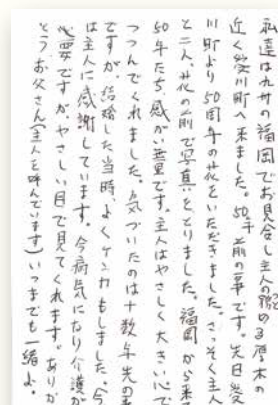 私達は九州の福岡でお見合し主人の勤める厚木の
近く愛川町へ来ました。50年前の事です。先日愛
川町より50周年の花をいただきました。さっそく主人
と二人、花の前で写真をとりました。福岡から来て
50年たち、感がい無量です。主人はやさしく大きい心で
つつんでくれました。気づいたのは十数年先の事
ですが、結婚した当時、よくケンカもしました。今
は主人に感謝しています。今病気になり介護が
必要ですが、やさしい目で見てくれます。ありが
とうお父さん(主人を呼んでいます)いつまでも一緒よ。